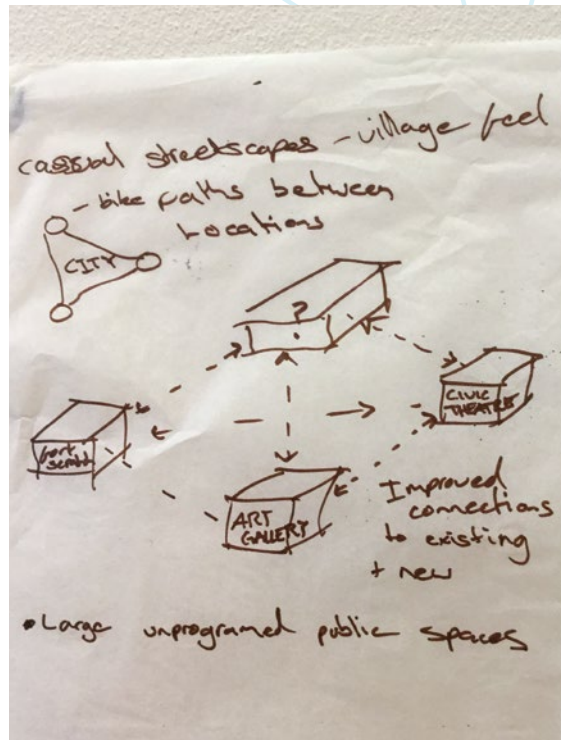 casual streetscapes - village feel
- bike paths between
locations
CITY
?
CIVIC
THEATRE
ART
GALLERY
Improved
connections
to existing
+ new
• Large unprogramed public spaces